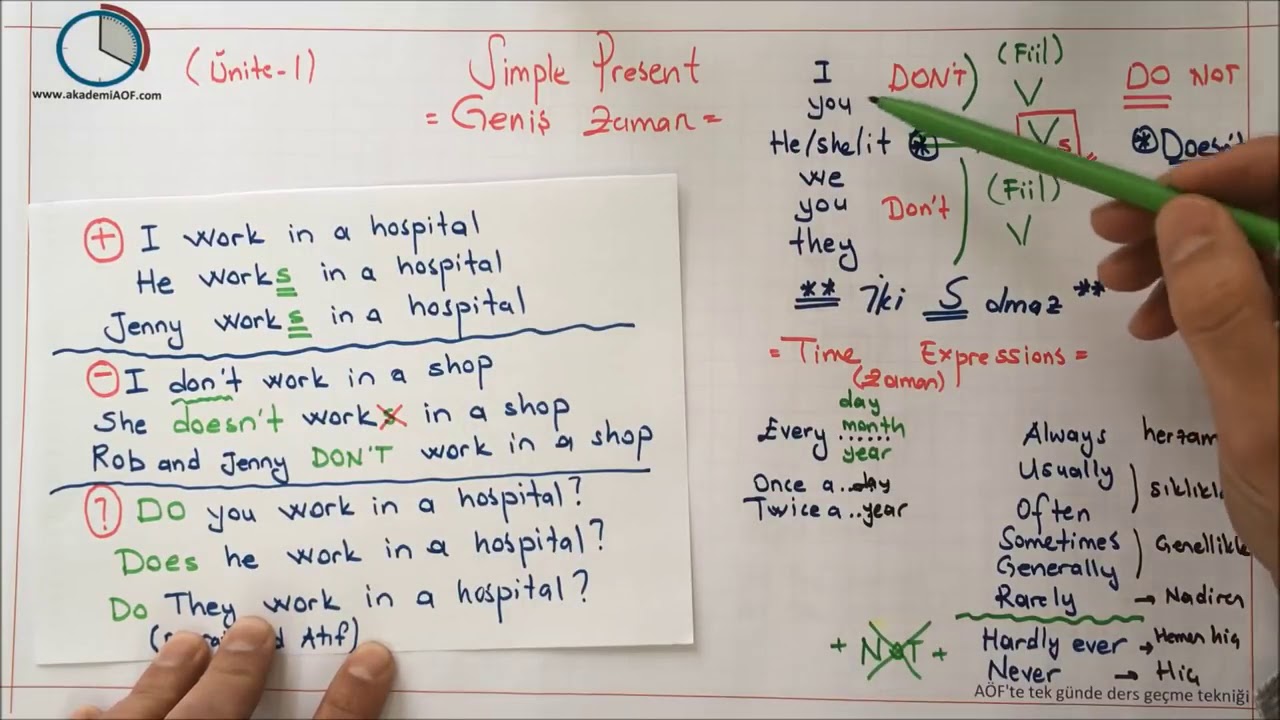 www.akademiAOF.com
(Ünite-1)
Simple Present
= Geniş Zaman =
I DON'T) (Fiil) DO NOT
you V
He/she/it * Vs * Doesn't
we (Fiil)
you Don't V
they
** İki S olmaz **
= Time Expressions =
(Zaman)
Every day
month
year
Once a..day
Twice a..year
Always
Usually
Often
Sometimes
Generally
Rarely → Nadiren
Hardly ever → Hemen hiç
Never → Hiç
+ NOT +
+ I work in a hospital
He works in a hospital
Jenny works in a hospital
- I don't work in a shop
She doesn't works in a shop
Rob and Jenny DON'T work in a shop
? DO you work in a hospital?
Does he work in a hospital?
Do They work in a hospital?
Atıf)
AÖF'te tek günde ders geçme tekniği